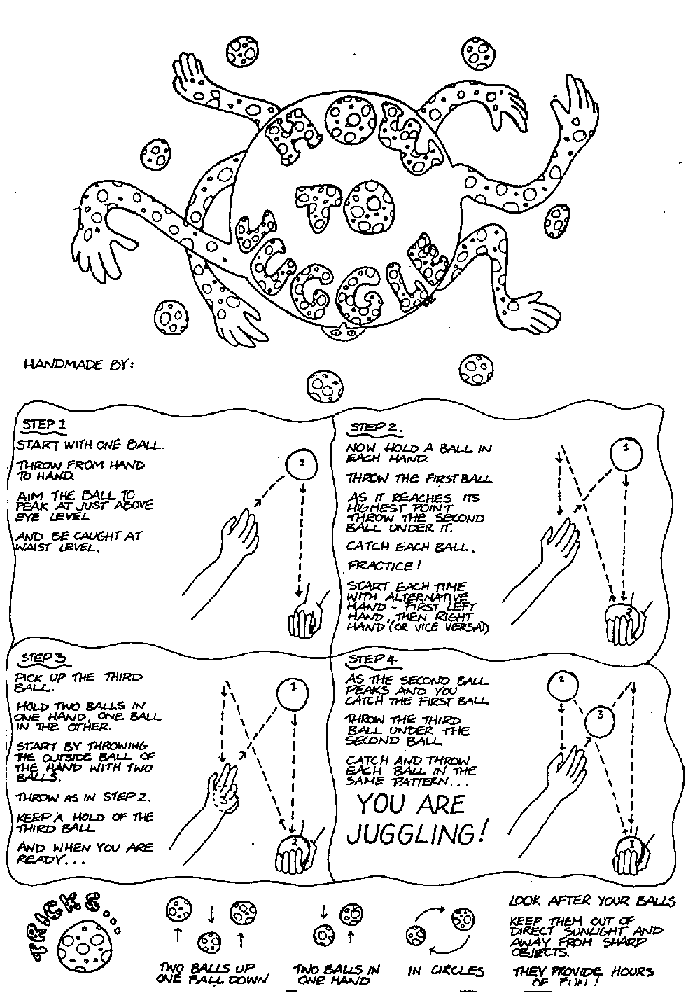 HOW
TO
JUGGLE
HANDMADE BY:
STEP 1
START WITH ONE BALL.
THROW FROM HAND
TO HAND.
AIM THE BALL TO
PEAK AT JUST ABOVE
EYE LEVEL
AND BE CAUGHT AT
WAIST LEVEL.
1
STEP 2.
NOW HOLD A BALL IN
EACH HAND.
THROW THE FIRST BALL
AS IT REACHES ITS
HIGHEST POINT
THROW THE SECOND
BALL UNDER IT.
CATCH EACH BALL.
PRACTICE!
START EACH TIME
WITH ALTERNATIVE
HAND - FIRST LEFT
HAND, THEN RIGHT
HAND (OR VICE VERSA)
1
2
STEP 3
PICK UP THE THIRD
BALL.
HOLD TWO BALLS IN
ONE HAND, ONE BALL
IN THE OTHER.
START BY THROWING
THE OUTSIDE BALL OF
THE HAND WITH TWO
BALLS.
THROW AS IN STEP 2.
KEEP A HOLD OF THE
THIRD BALL
AND WHEN YOU ARE
READY...
1
STEP 4.
AS THE SECOND BALL
PEAKS AND YOU
CATCH THE FIRST BALL
THROW THE THIRD
BALL UNDER THE
SECOND BALL
CATCH AND THROW
EACH BALL IN THE
SAME PATTERN...
YOU ARE
JUGGLING!
2
3
1
TRICKS...
TWO BALLS UP
ONE BALL DOWN
TWO BALLS IN
ONE HAND
IN CIRCLES
LOOK AFTER YOUR BALLS
KEEP THEM OUT OF
DIRECT SUNLIGHT AND
AWAY FROM SHARP
OBJECTS.
THEY PROVIDE HOURS
OF FUN!